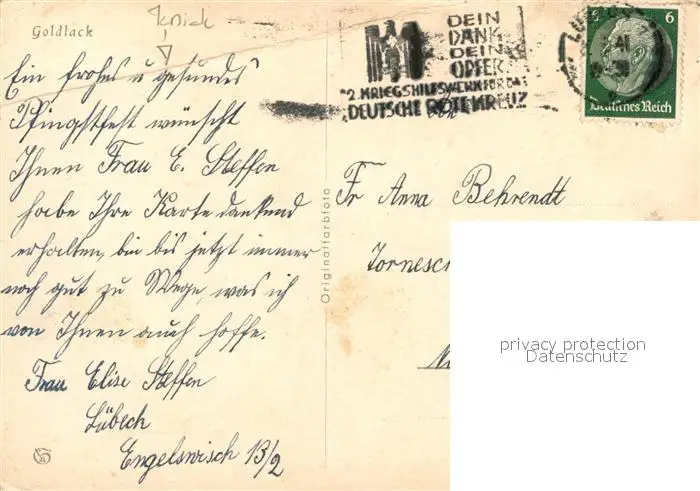 Goldlack
Knick
Ein frohes u gesundes
Pfingstfest wünscht
Ihnen Frau E. Steffen
habe Ihre Karte dankend
erhalten, bin bis jetzt immer
noch gut zu Wege, was ich
von Ihnen auch hoffe.
Frau Elise Steffen
Lübeck
Engelswisch 13/2
Originalfarbfoto
DEIN
DANK
DEIN
OPFER
2. KRIEGSHILFSWERK FÜR DAS
DEUTSCHE ROTE KREUZ
6
Deutsches Reich
Fr Anna Behrendt
Tornesc
privacy protection
Datenschutz